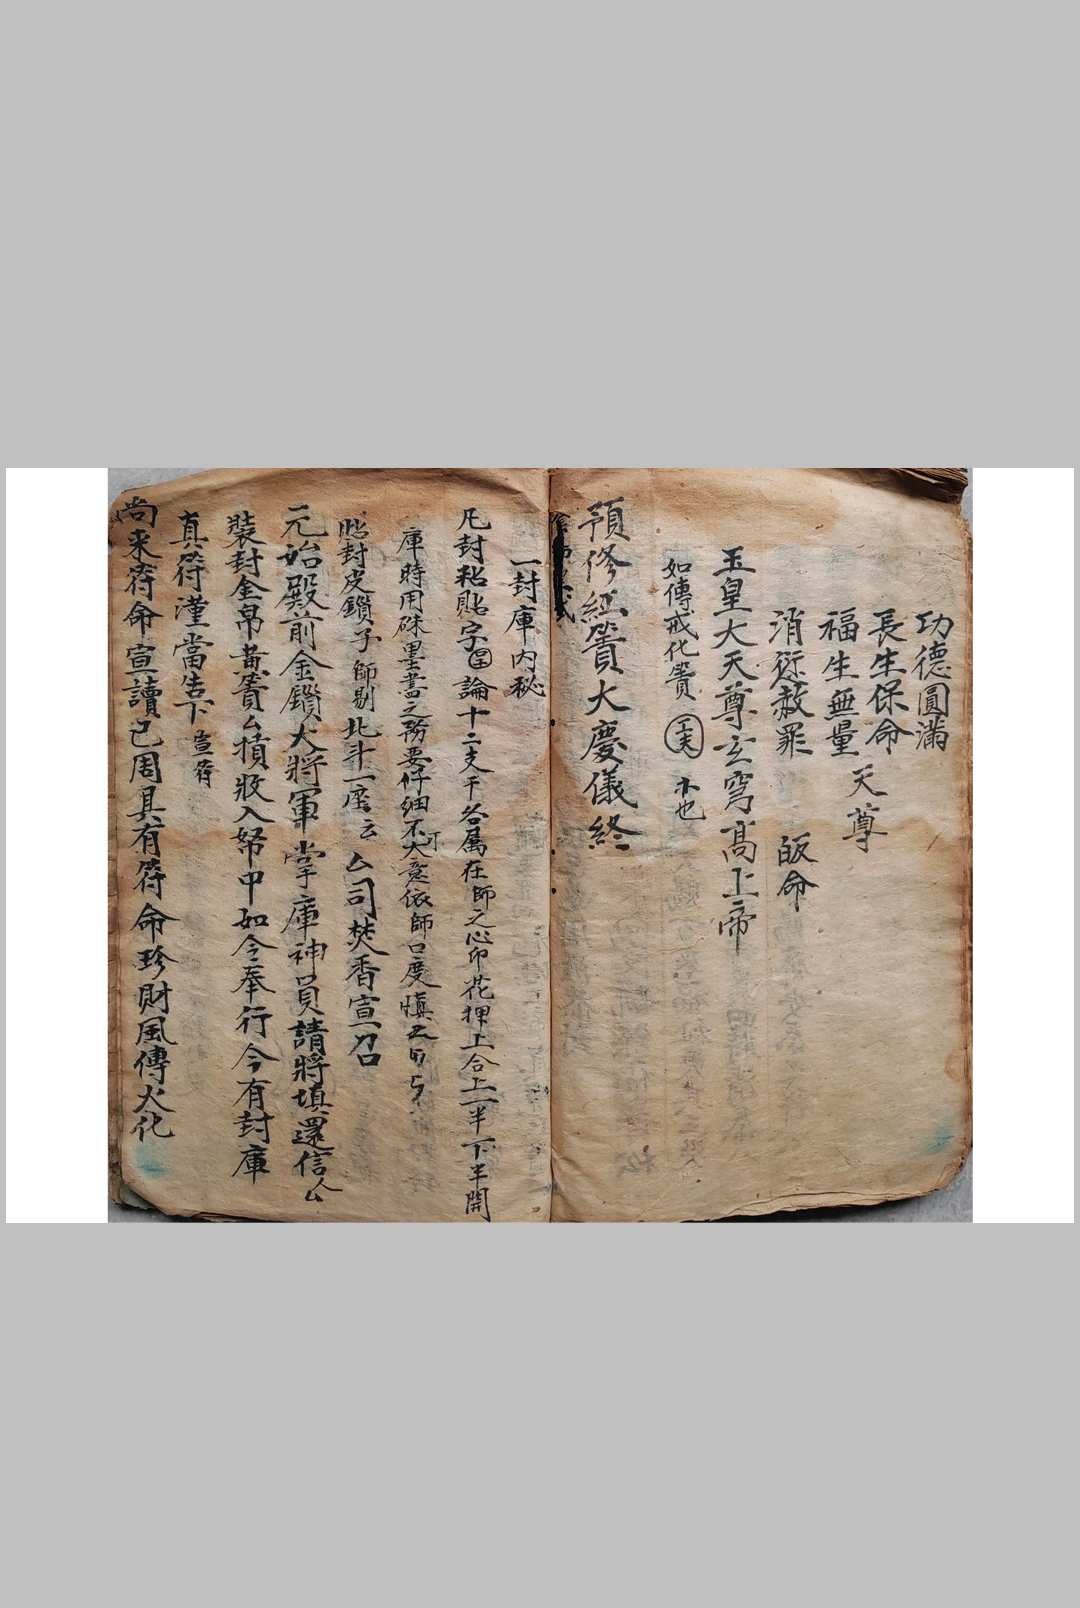 功德圓滿
長生保命
福生無量 天尊
消愆赦罪 皈命
玉皇大天尊玄穹高上帝
如傳戒化籙 也
預修紅籙大慶儀終
一封庫內秘
凡封粘貼字 論十二支干各屬在師之心印花押上合上一半下半開
庫時用硃墨書之務要仔細不可大意依師口度慎之
貼封皮鎖子師剔北斗一座云 厶司焚香宣召
元始殿前金鎖大將軍掌庫神員請將填還信人厶
裝封金帛黃籙厶槓收入帑中如今奉行今有封庫
真符謹當告下宣符
尚來符命宣讀已周具有符命珍財風傳火化